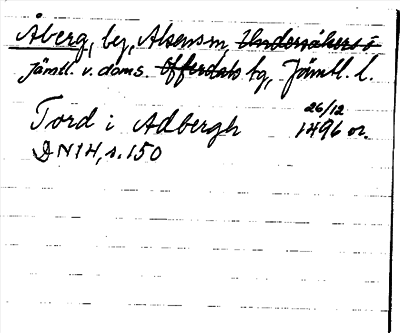 Åberg, by, Alsens sn, Undersåkers o
Jämtl. v. doms. Offerdals tg, Jämtl. l.
Tord i Adbergh 26/12 1496 or.
DN 14, s. 150